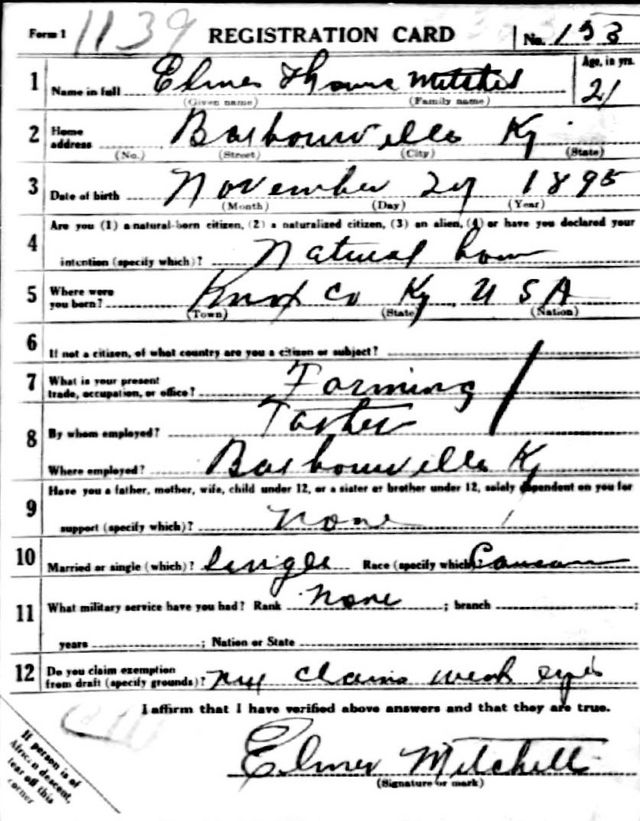 Form 1 1139 REGISTRATION CARD No. 193
1 Name in full Elmer Thomas Mitchell Age, in yrs. 21
(Given name) (Family name)
2 Home address Barbourville Ky
(No.) (Street) (City) (State)
3 Date of birth November 27 1895
(Month) (Day) (Year)
Are you (1) a natural-born citizen, (2) a naturalized citizen, (3) an alien, (4) or have you declared your
4 intention (specify which)? Natural born
5 Where were you born? Knox Co Ky U S A
(Town) (State) (Nation)
6 If not a citizen, of what country are you a citizen or subject?
7 What is your present trade, occupation, or office? Farming
8 By whom employed? Father
Where employed? Barbourville Ky
9 Have you a father, mother, wife, child under 12, or a sister or brother under 12, solely dependent on you for
support (specify which)? None
10 Married or single (which)? Single Race (specify which)?
11 What military service have you had? Rank None ; branch ;
years ; Nation or State
12 Do you claim exemption from draft (specify grounds)? claims weak eyes
I affirm that I have verified above answers and that they are true.
Elmer Mitchell
(Signature or mark)
If person is of
African descent,
tear off this
corner